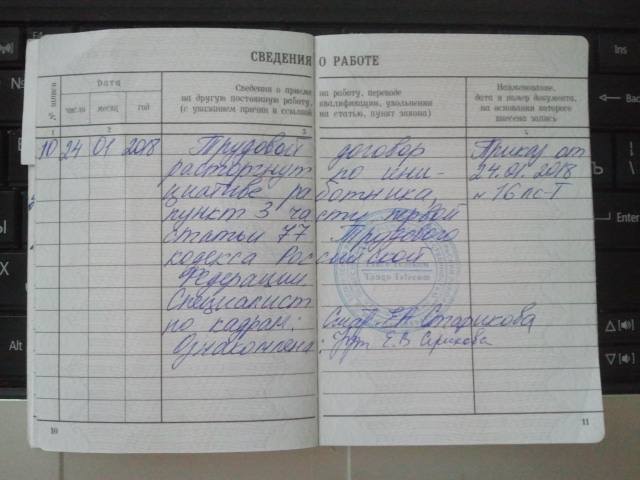 СВЕДЕНИЯ О РАБОТЕ
№ записи
Дата
число
месяц
год
Сведения о приеме на работу, переводе
на другую постоянную работу, квалификации, увольнении
(с указанием причин и ссылкой на статью, пункт закона)
Наименование,
дата и номер документа,
на основании которого
внесена запись
1
2
3
4
10 24 01 2018 Трудовой договор Приказ от
расторгнут по ини- 24.01.2018
циативе работника, № 16 лс-Т
пункт 3 части первой
статьи 77 Трудового
кодекса Российской
Федерации.
Специалист
по кадрам: Е.А. Старикова
Ознакомлена: Е.В.
10
11
Ins
Backs
Enter
Alt